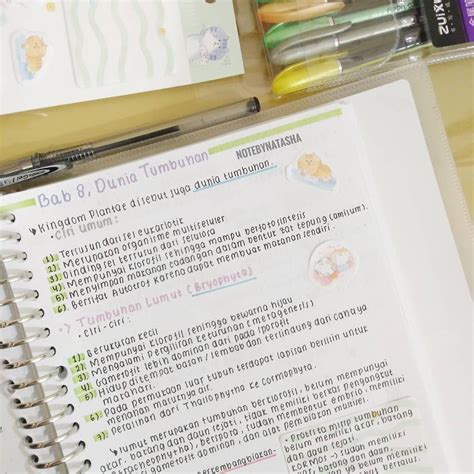 ZUIXUA
Bab 8, Dunia Tumbuhan
NOTEBYNATASHA
↳ Kingdom Plantae disebut juga dunia tumbuhan.
• Ciri umum:
1) Tersusun dari sel eukariotik
2) Merupakan organisme multiseluler
3) Dinding sel tersusun dari selulosa
4) Mempunyai klorofil sehingga mampu berfotosintesis
5) Menyimpan makanan cadangan dalam bentuk zat tepung (amilum).
6) Bersifat autotrof karena dapat membuat makanan sendiri.
Tumbuhan Lumut (Bryophyta)
• Ciri-ciri:
1) Berukuran kecil
2) Mempunyai klorofil sehingga bewarna hijau
3) Mengalami pergiliran keturunan (metagenesis)
4) Gametofit lebih dominan dari pada sporofit
5) Hidup ditempat basah / lembab dan terlindung dari cahaya
matahari.
6) Pada permukaan luar tubuh terdapat lapisan berlilin untuk
menahan masuknya air.
7) Peralihan dari Thallophyta ke Cormophyta.
lumut merupakan tumbuhan berklorofil, belum mempunyai
akar, batang dan daun sejati, tidak memiliki berkas pengangkut
(Tracheophyta), berspora, sudah membentuk embrio, memiliki